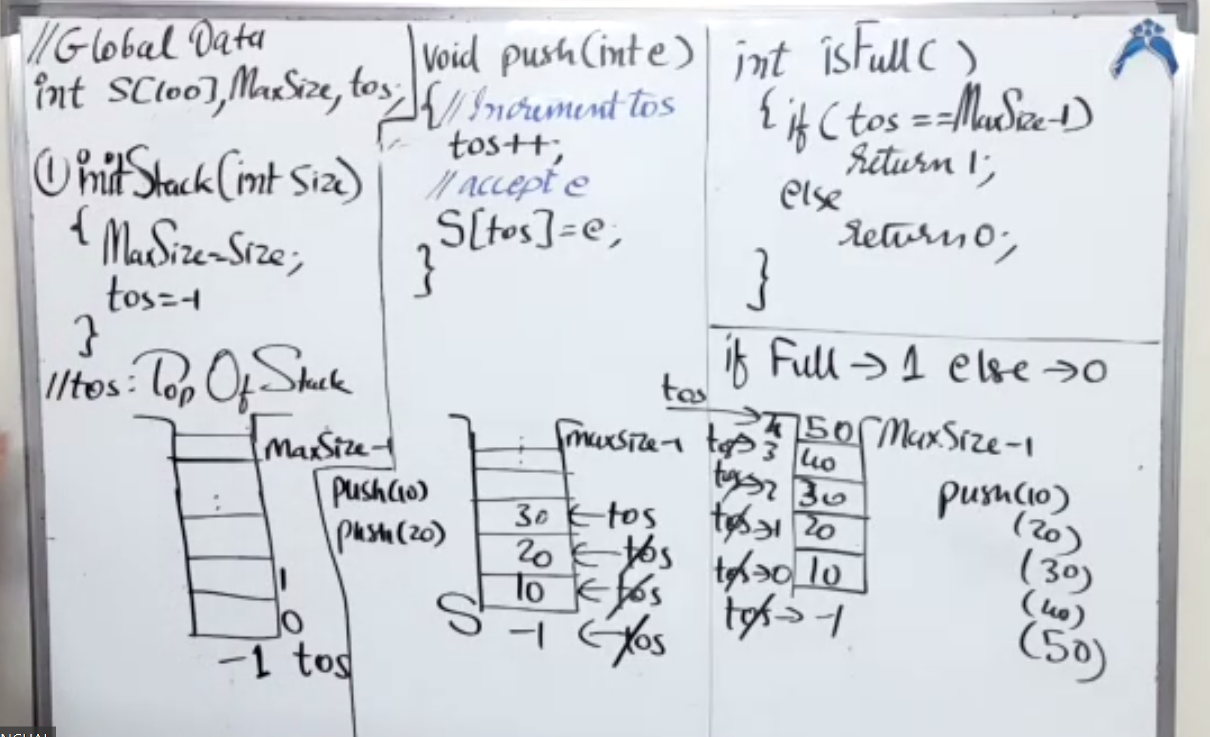 //Global Data
int S[100], MaxSize, tos;
① initStack(int size)
{
MaxSize=Size;
tos=-1
}
//tos: Top Of Stack
MaxSize-1
1
0
-1 tos
void push(int e)
{ //Increment tos
tos++;
//accept e
S[tos]=e;
}
push(10)
push(20)
maxsize-1
30 ← tos
20 ← tos
10 ← tos
S -1 ← tos
int isFull( )
{ if( tos ==MaxSize-1)
return 1;
else
return 0;
}
if Full → 1 else → 0
tos → 4 50 MaxSize-1
tos→3 40
tos→2 30
tos→1 20
tos→0 10
tos→ -1
push(10)
(20)
(30)
(40)
(50)